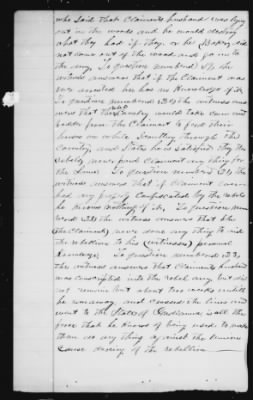 who said that Claimants husband was lying
out in the woods and he would destroy
what they had if they or he Bakers did
not come out of the woods and go into
the army. To question number 15 the
witness answers that if the Claimant was
ever arrested her has no Knowledge of it
To question number the witness ans
wers that the Rebels would take corn and
fodder from the Claimant to feed their
horses on while Scouting through the
Country, and States he is satisfied they the
Rebels never paid Claimant any thing for
the same. To question number 21 the
witness answers that if Claimant ever
had any property Confiscated by the rebels
he knows nothing of it. To question num
ber the witness answers that she
(the Claimant) never done any thing to aid
the rebellion to his (witnesses) personal
Knowledge. To question number 33
the witness answers that Claimants husband
was conscripted into the rebel army but did
not remain but about two weeks until
he runaway and crossed the lines and
went to the State of Indiana is all the
force that he knows of being used to make
them do any thing against the union
Cause during of the rebellion